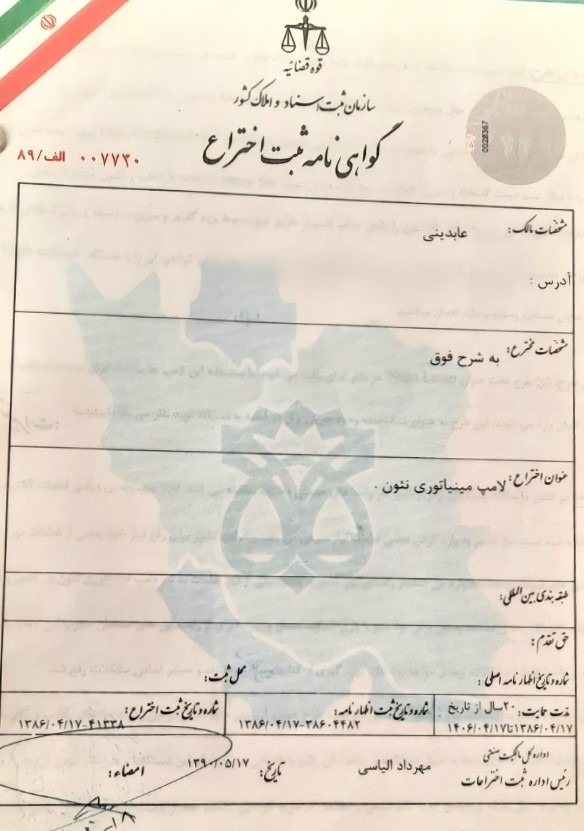 قوه قضائیه
سازمان ثبت اسناد و املاک کشور
گواهی نامه ثبت اختراع
۰۰۷۷۳۰ الف/۸۹
0028367
مشخصات مالک: عابدینی
آدرس :
مشخصات مخترع: به شرح فوق
عنوان اختراع: لامپ مینیاتوری نئون .
طبقه بندی بین المللی:
حق تقدم:
شماره و تاریخ اظهارنامه اصلی : محل ثبت:
مدت حمایت: ۲۰سال از تاریخ
۱۳۸۶/۰۴/۱۷تا۱۴۰۶/۰۴/۱۷
شماره و تاریخ ثبت اظهارنامه:
۱۳۸۶/۰۴/۱۷-۳۸۶۰۴۴۸۲
شماره و تاریخ ثبت اختراع:
۱۳۸۶/۰۴/۱۷-۴۱۳۳۸
اداره کل مالکیت صنعتی
رئیس اداره ثبت اختراعات
مهرداد الیاسی تاریخ: ۱۳۹۰/۰۵/۱۷ امضاء: